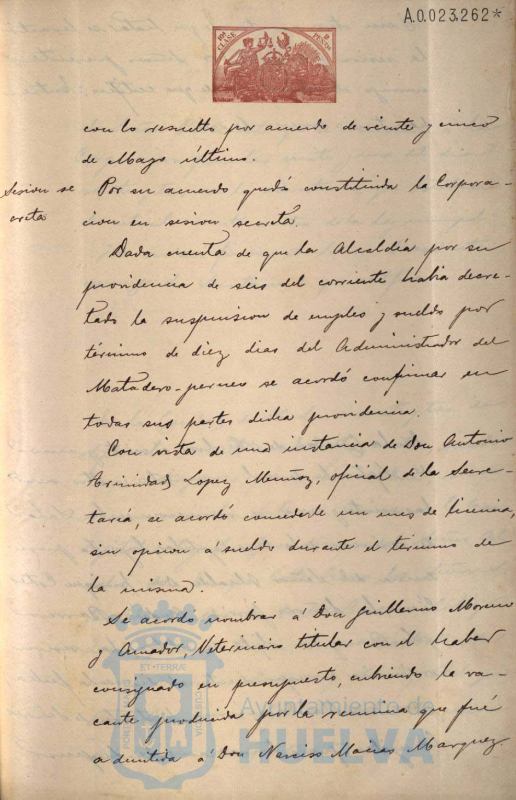 A.0.023.262*
10ª CLASE
con lo resuelto por acuerdo de veinte y cinco
de Mayo último.
Sesion secreta
Por su acuerdo quedó constituida la Corpora-
cion en sesion secreta.
Dada cuenta de que la Alcaldía por su
providencia de seis del corriente habia decre-
tado la suspension de empleo y sueldo por
término de diez dias del Administrador del
Matadero-perneo se acordó confirmar en
todas sus partes dicha providencia.
Con vista de una instancia de Don Antonio
Trinidad Lopez Muñoz, oficial de la Secre-
taría, se acordó concederle un mes de licencia,
sin opcion á sueldo durante el termino de
la misma.
Se acordó nombrar á Don Guillermo Moreno
y Amador, Veterinario titular con el haber
consignado en presupuesto, cubriendo la va-
cante producida por la renuncia que fué
admitida á Don Narciso Macias Marquez.
Ayuntamiento de
HUELVA